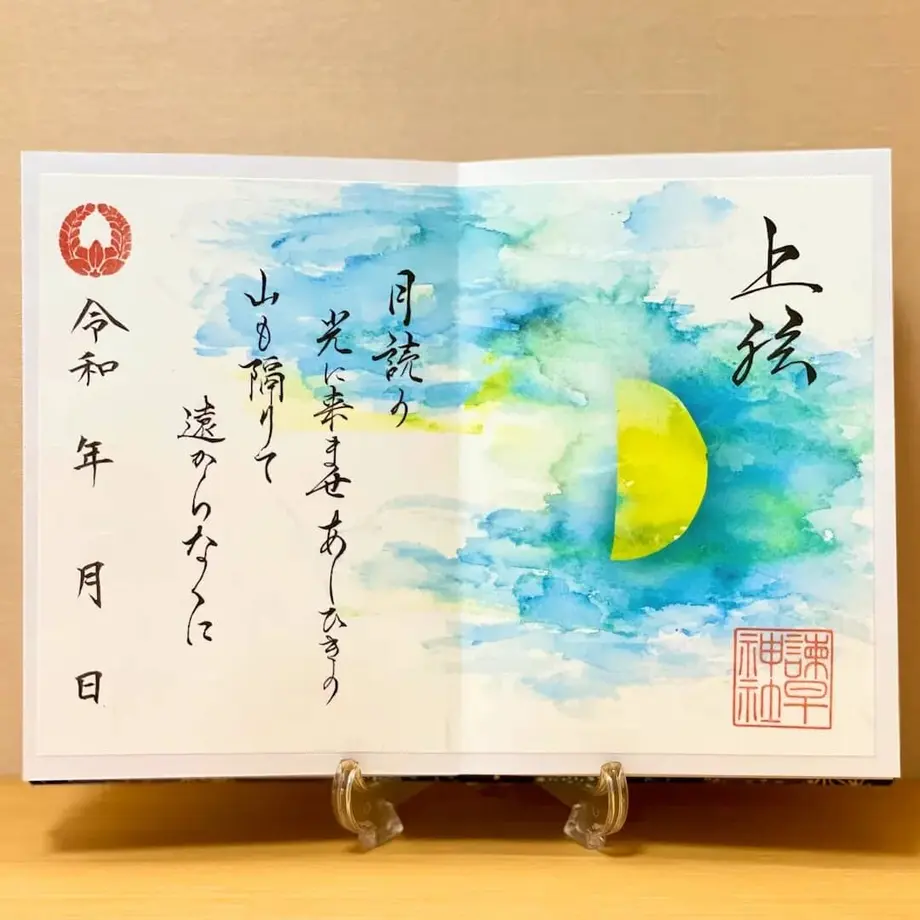 上弦
諫早
神社
月読の
光に来ませあしひきの
山も隔りて
遠からなくに
令和 年 月 日